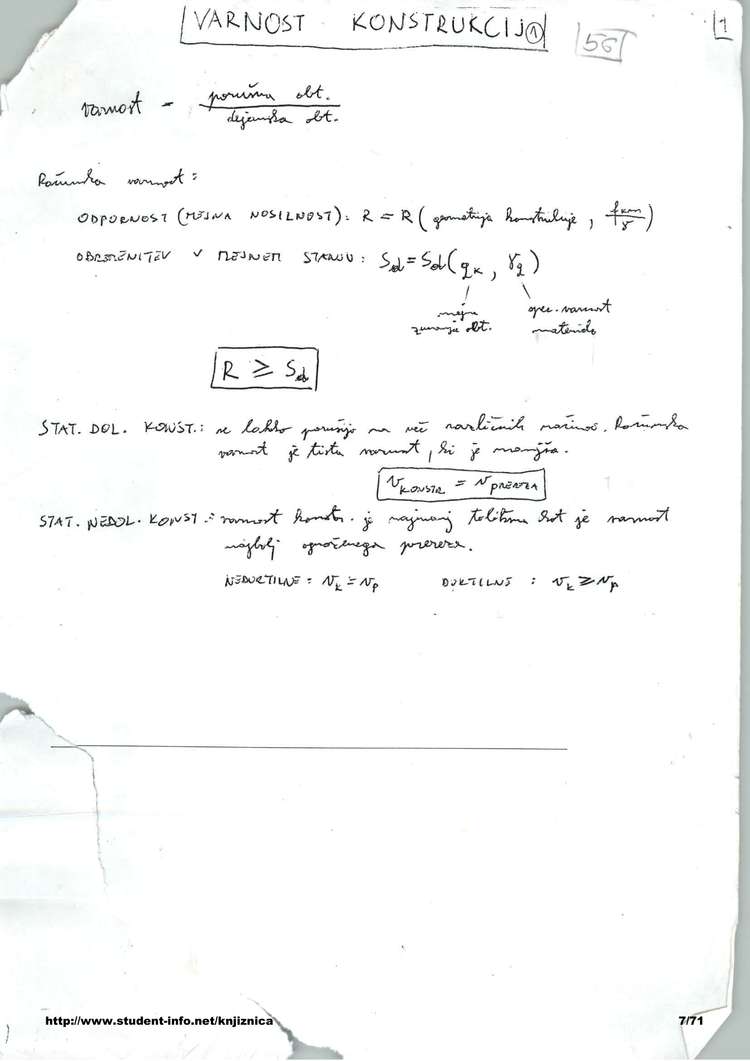 VARNOST KONSTRUKCIJ ① 56 1
varnost = porušna obt. / dejanska obt.
Računska varnost:
ODPORNOST (MEJNA NOSILNOST): R = R ( geometrija konstrukcije , / γ )
OBREMENITEV V MEJNEM STANJU : Sd = Sd ( qk , γq )
meja
zunanje obt.
spec. varnost
materiala
R ≥ Sd
STAT. DOL. KONST.: se lahko porušijo na več različnih načinov. Računska
varnost je tista varnost, ki je manjša.
νKONSTR = νPREREZA
STAT. NEDOL. KONST.: varnost konstr. je najmanj tolikšna kot je varnost
najbolj ogroženega prereza.
NEDUKTILNE : νk = νp DUKTILNE : νk ≥ νp
http://www.student-info.net/knjiznica 7/71